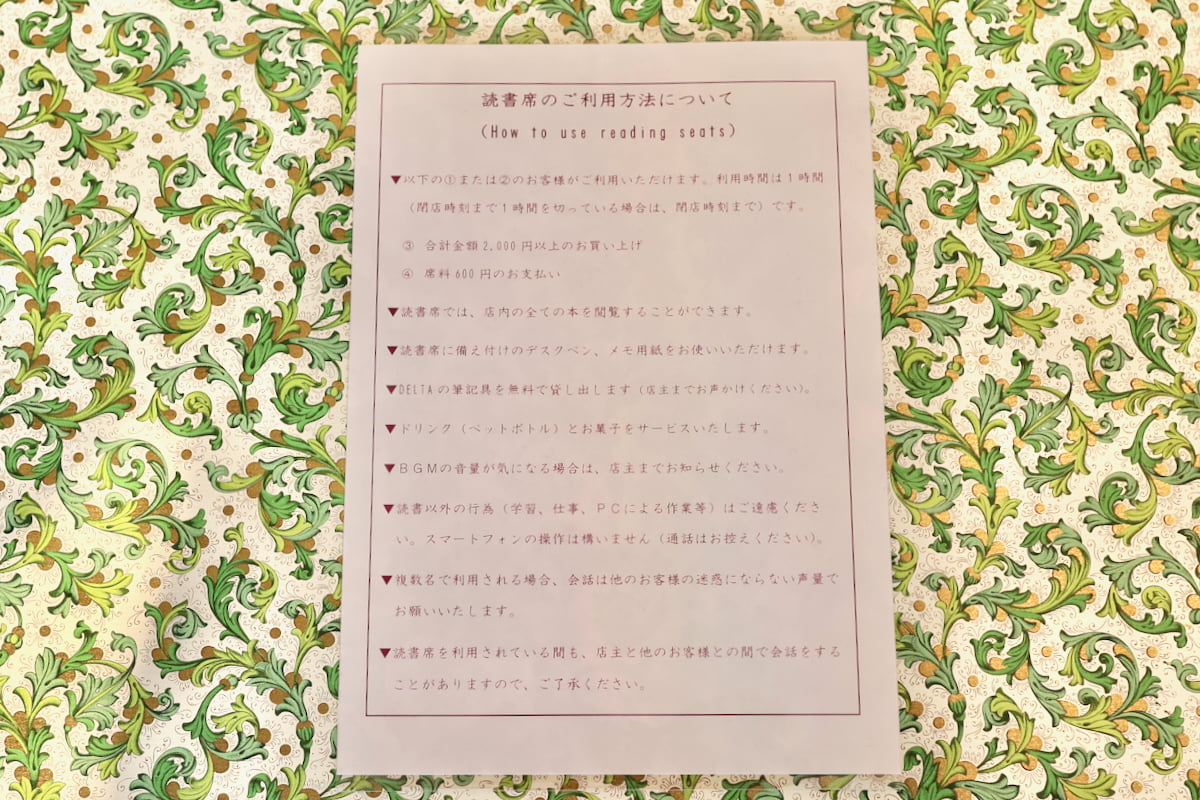 読書席のご利用方法について
(How to use reading seats)
▼以下の①または②のお客様がご利用いただけます。利用時間は１時間
（閉店時刻まで１時間を切っている場合は、閉店時刻まで）です。
③ 合計金額2,000円以上のお買い上げ
④ 席料600円のお支払い
▼読書席では、店内の全ての本を閲覧することができます。
▼読書席に備え付けのデスクペン、メモ用紙をお使いいただけます。
▼DELTAの筆記具を無料で貸し出します（店主までお声かけください）。
▼ドリンク（ペットボトル）とお菓子をサービスいたします。
▼ＢＧＭの音量が気になる場合は、店主までお知らせください。
▼読書以外の行為（学習、仕事、ＰＣによる作業等）はご遠慮くださ
い。スマートフォンの操作は構いません（通話はお控えください）。
▼複数名で利用される場合、会話は他のお客様の迷惑にならない声量で
お願いいたします。
▼読書席を利用されている間も、店主と他のお客様との間で会話をする
ことがありますので、ご了承ください。